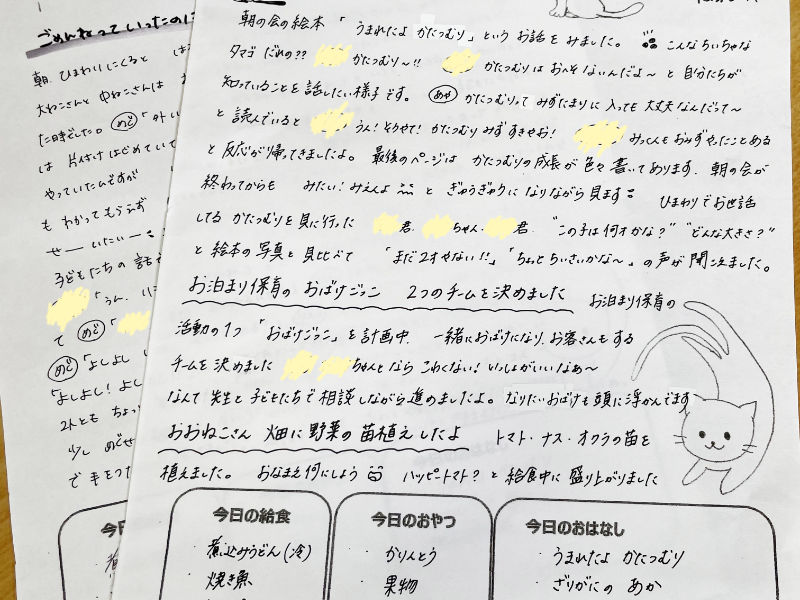 ごめんねっていったのに
朝の会の絵本「うまれたよ かたつむり」という お話を みました。 こんなちいちゃな
タマゴ だれの?? かたつむり〜!! かたつむりは おっそないんだよ〜 と 自分たちが
知っていることを 話したい様子です。 あや かたつむりって みずたまりに 入っても 大丈夫なんだって〜
と 読んでいると うん!そりゃそ! かたつむり みず すきやお! みっくんも おみずやったことある
と 反応が帰ってきましたよ。 最後のページは かたつむりの成長が 色々 書いてあります。朝の会が
終わってからも みたい!みえんよ と ぎゅうぎゅうに なりながら 見ます。 ひまわりで お世話
してる かたつむりを 見に行った 君. ちゃん・ 君. “この子は何才かな?” “どんな大きさ?”
と 絵本の 写真と 見比べて 「まだ2才やない!!」「ちょっと ちいさいかな〜」の声が 聞こえました。
お泊まり保育の おばけごっこ 2つのチームを 決めました
お泊まり保育の
活動の1つ 「おばけごっこ」を 計画中. 一緒におばけになり、お客さんもする
チームを 決めました ちゃんとなら こわくない! いっしょがいいなあ〜
なんて 先生と 子どもたちで 相談しながら 進めましたよ。なりたいおばけも 頭に浮かんでます
おおねこさん 畑に 野菜の 苗植えしたよ
トマト・ナス・オクラの苗を
植えました。 おなまえ何にしよう ハッピートマト? と 給食中に 盛り上がりました
今日の給食
・煮込みうどん(冷)
・焼き魚
今日のおやつ
・かりんとう
・果物
今日のおはなし
・うまれたよ かたつむり
・ざりがにの あか
朝. ひまわりにくると
大ねこさんと 中ねこさんは
た時でした。 めど 「外い
は 片付け はじめていて
やっていたんですが
も わかってもらえず
せー いたいー
子どもたちの 話
「うん.
て めど
めど 「よしよし
「よしよし! よし
2人とも ちょっ
少し めどせ
で 手をつ
今日